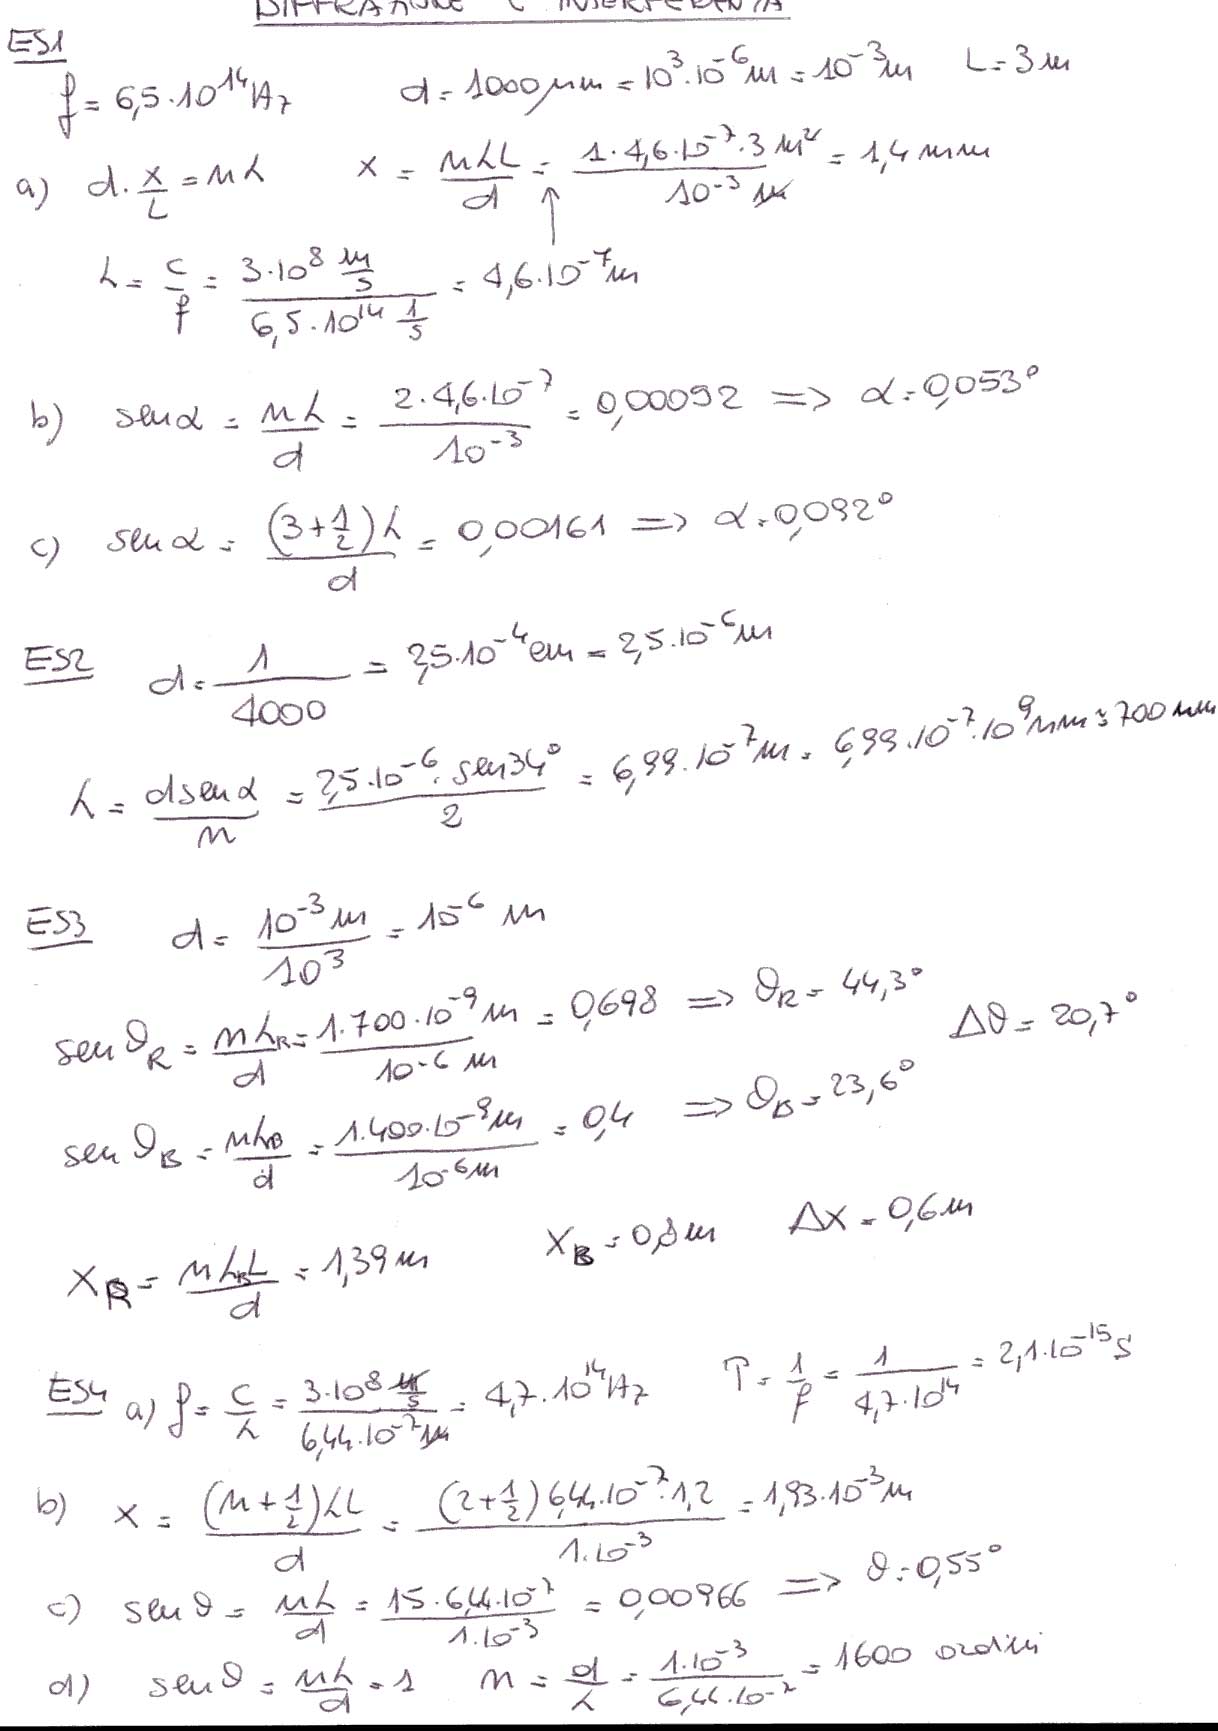 DIFFRAZIONE E INTERFERENZA
ES1
f = 6,5·10¹⁴Hz d = 1000μm = 10³·10⁻⁶m = 10⁻³m L = 3m
a) d·x/L = nλ x = nλL/d = 1·4,6·10⁻⁷·3 m²/10⁻³ m = 1,4 mm
λ = c/f = 3·10⁸ m/s / 6,5·10¹⁴ 1/s = 4,6·10⁻⁷m
b) senα = nλ/d = 2·4,6·10⁻⁷/10⁻³ = 0,00092 => α = 0,053°
c) senα = (3+1/2)λ/d = 0,00161 => α = 0,092°
ES2 d = 1/4000 = 2,5·10⁻⁴cm = 2,5·10⁻⁶m
λ = dsenα/n = 2,5·10⁻⁶·sen34°/2 = 6,99·10⁻⁷m = 6,99·10⁻⁷·10⁹nm ≃ 700nm
ES3 d = 10⁻³m/10³ = 10⁻⁶ m
senϑR = nλR/d = 1·700·10⁻⁹m/10⁻⁶ m = 0,698 => ϑR = 44,3° Δϑ = 20,7°
senϑB = nλB/d = 1·400·10⁻⁹m/10⁻⁶m = 0,4 => ϑB = 23,6°
XR = nλRL/d = 1,39m XB = 0,8m ΔX = 0,6m
ES4 a) f = c/λ = 3·10⁸ m/s / 6,44·10⁻⁷m = 4,7·10¹⁴Hz T = 1/f = 1/4,7·10¹⁴ = 2,1·10⁻¹⁵s
b) x = (n+1/2)λL/d = (2+1/2)6,44·10⁻⁷·1,2/1·10⁻³ = 1,93·10⁻³m
c) senϑ = nλ/d = 15·6,44·10⁻⁷/1·10⁻³ = 0,00966 => ϑ = 0,55°
d) senϑ = nλ/d = 1 n = d/λ = 1·10⁻³/6,44·10⁻⁷ = 1600 ordini